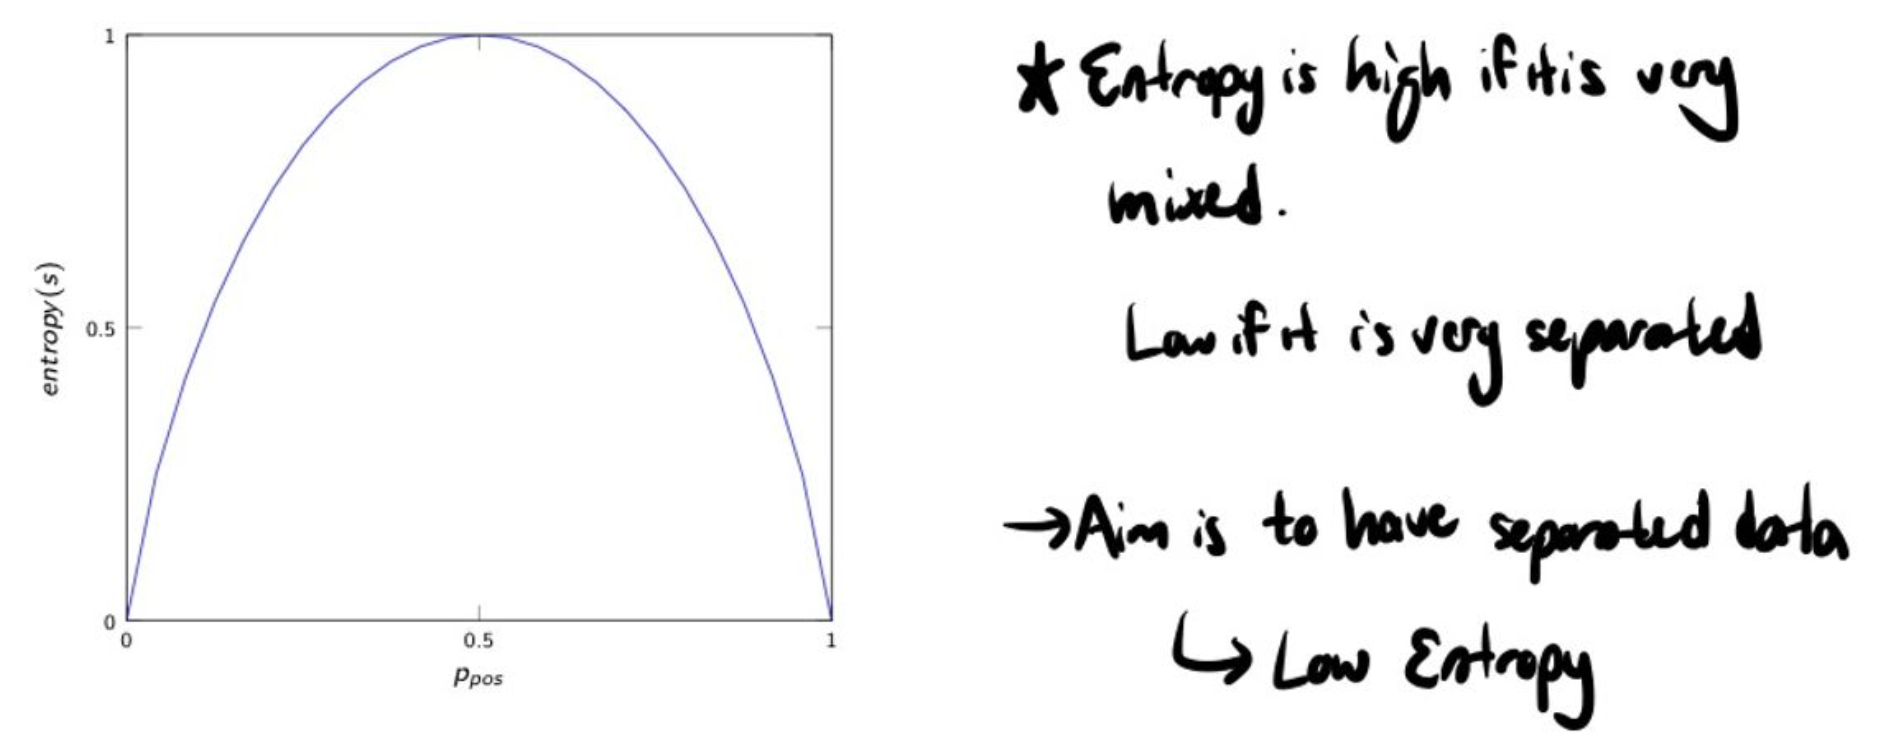 1
0.5
0
entropy(s)
0
0.5
1
p_pos
★ Entropy is high if it is very
mixed.
Low if it is very separated
→ Aim is to have separated data
↳ Low Entropy